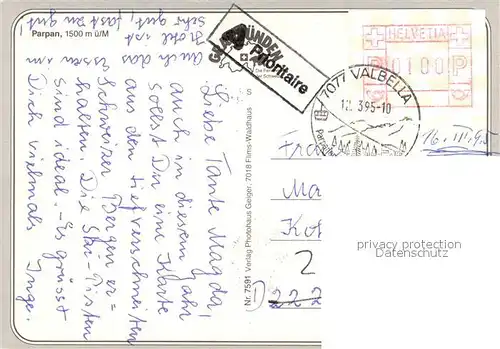 Parpan, 1500 m ü/M
Liebe Tante Magda,
auch in diesem Jahr
sollst Du eine Karte
aus den tiefverschneiten
Schweizer Bergen er=
halten. Die Ski-Pisten
sind ideal. - Es grüsst
Dich vielmals Inge.
Auch das Essen im
Hotel ist
sehr gut, fast zu gut
Nr. 7591 Verlag Photohaus Geiger, 7018 Flims-Waldhaus
Prioritaire
HELVETIA
P 0100 P
7077 VALBELLA
12. 3.95-10
16. III. 95
Fra
Ma
Ko
2
D 222
privacy protection
Datenschutz